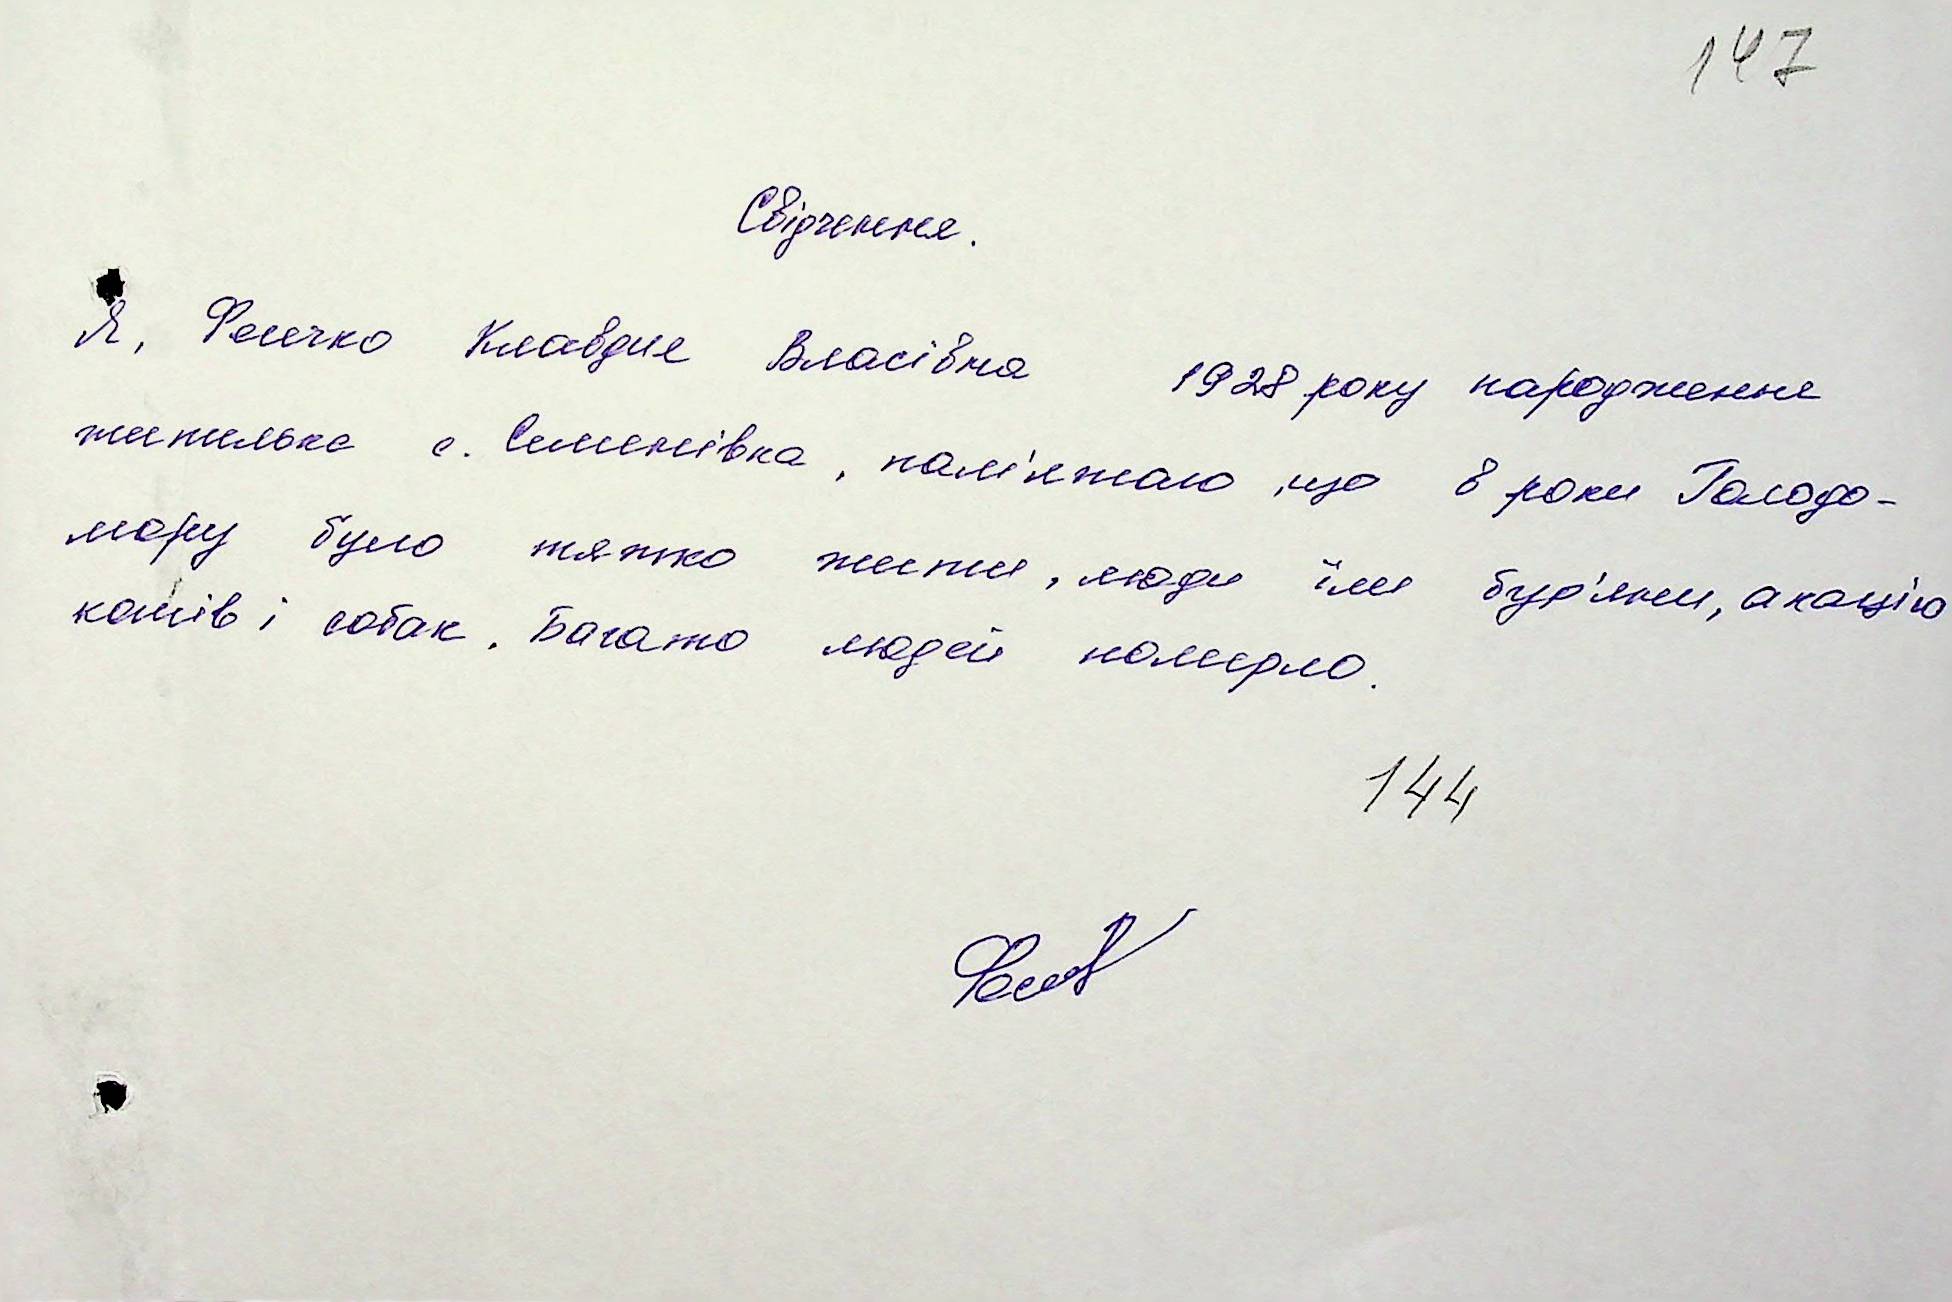 147
Свідчення.
Я, Фесечко Клавдия Власівна 1928 року народження
жителька с. Семенівка, пам'ятаю, що в роки Голодо-
мору було тяжко жити, люди їли бур'яни, акацію
котів і собак. Багато людей померло.
144